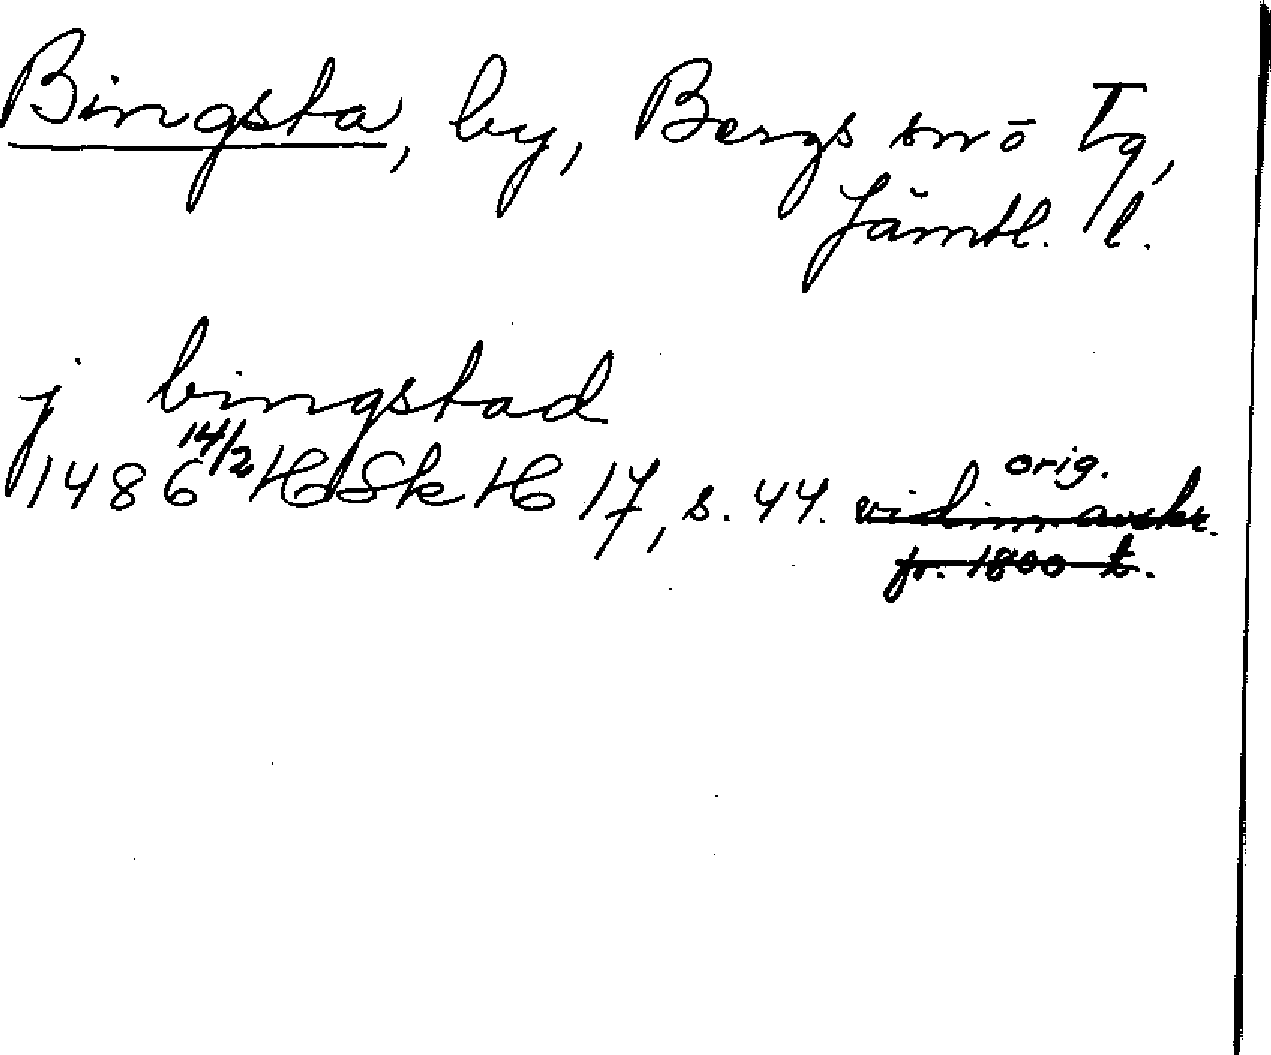 Bingsta, by, Bergs sn o Tg,
Jämtl. l.
j bingstad
1486 14/2 HdSkH 17, s. 44. orig.
vidim. avskr.
fr. 1800 t.